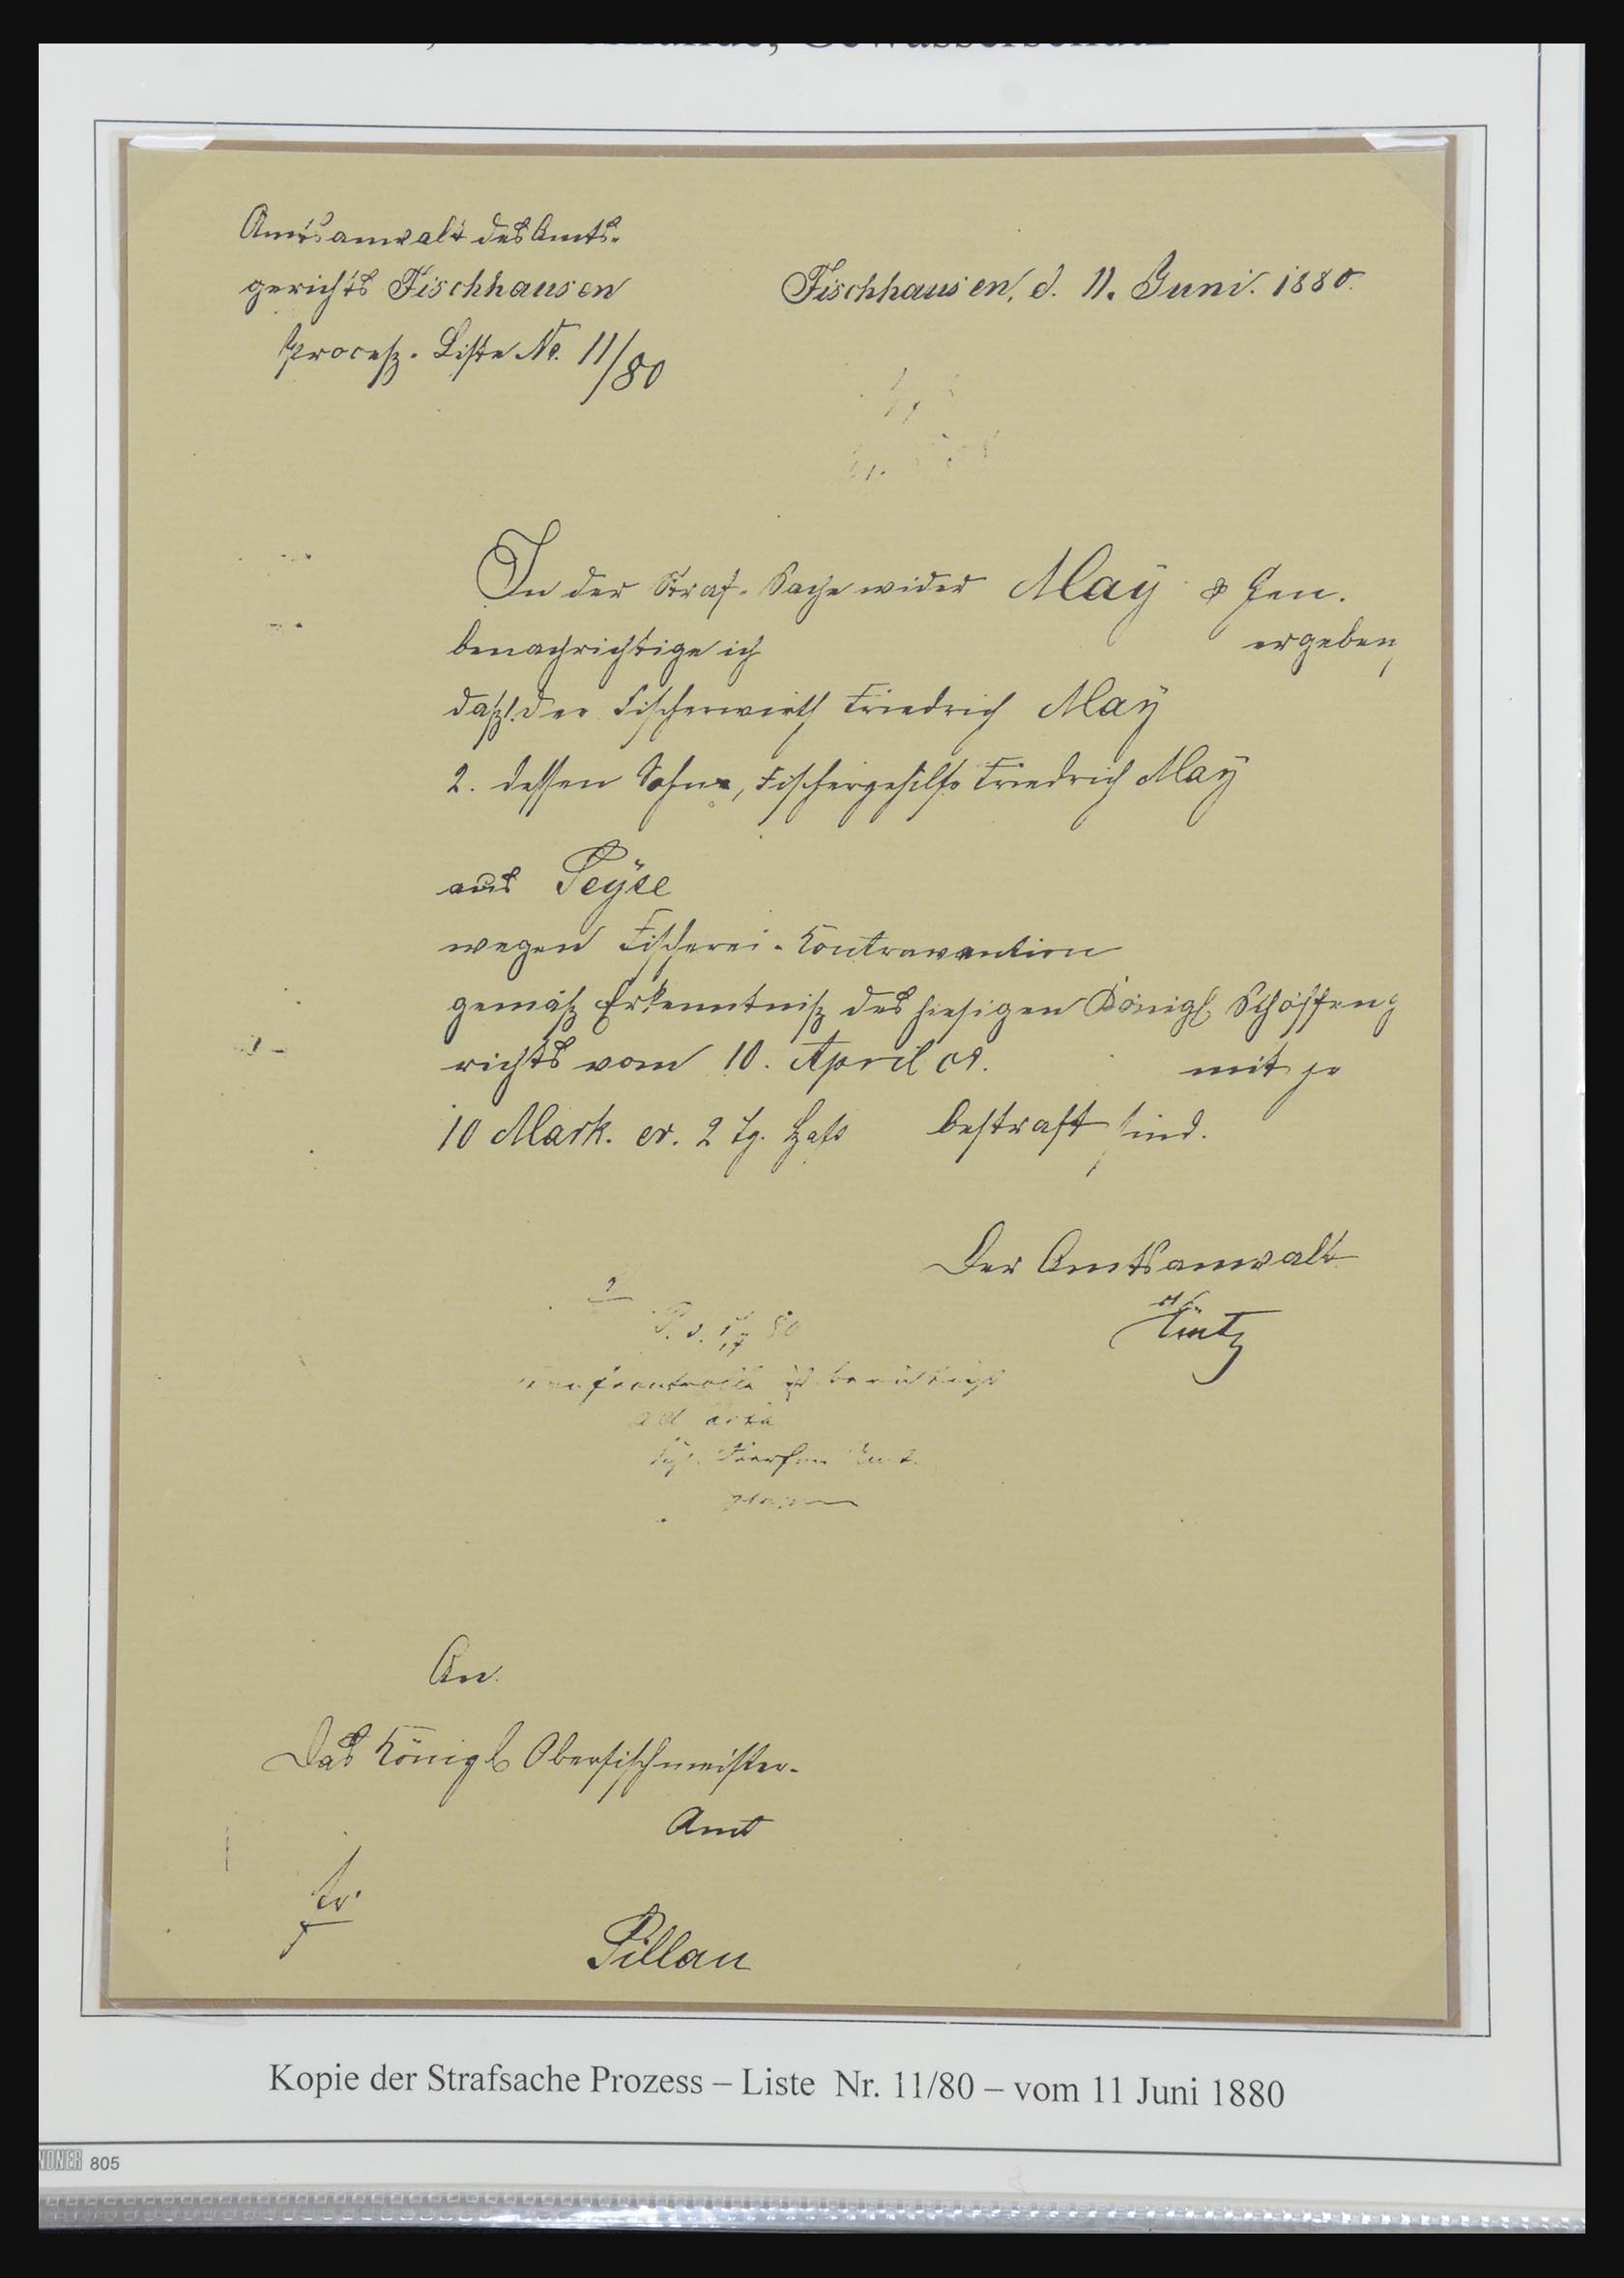 Gewässerschutz
Amtsanwalt des Amts-
gerichts Fischhausen
Fischhausen, d. 11. Juni. 1880.
Process-Liste No. 11/80
In der Straf-Sache wider May & Gen.
benachrichtige ich ergeben,
daß 1. der Fischerwirth Friedrich May
2. dessen Sohn, Fischergehilfe Friedrich May
aus Peyse
wegen Fischerei-Kontravention
gemäß Erkenntniß des hiesigen Königl. Schöffeng
richts vom 10. April cr. mit je
10 Mark. ev. 2 Tg. Haft bestraft sind.
Der Amtsanwalt
ad acta
An
Das Königl Oberfischmeister-
Amt
Pillau
Kopie der Strafsache Prozess – Liste Nr. 11/80 – vom 11 Juni 1880
805